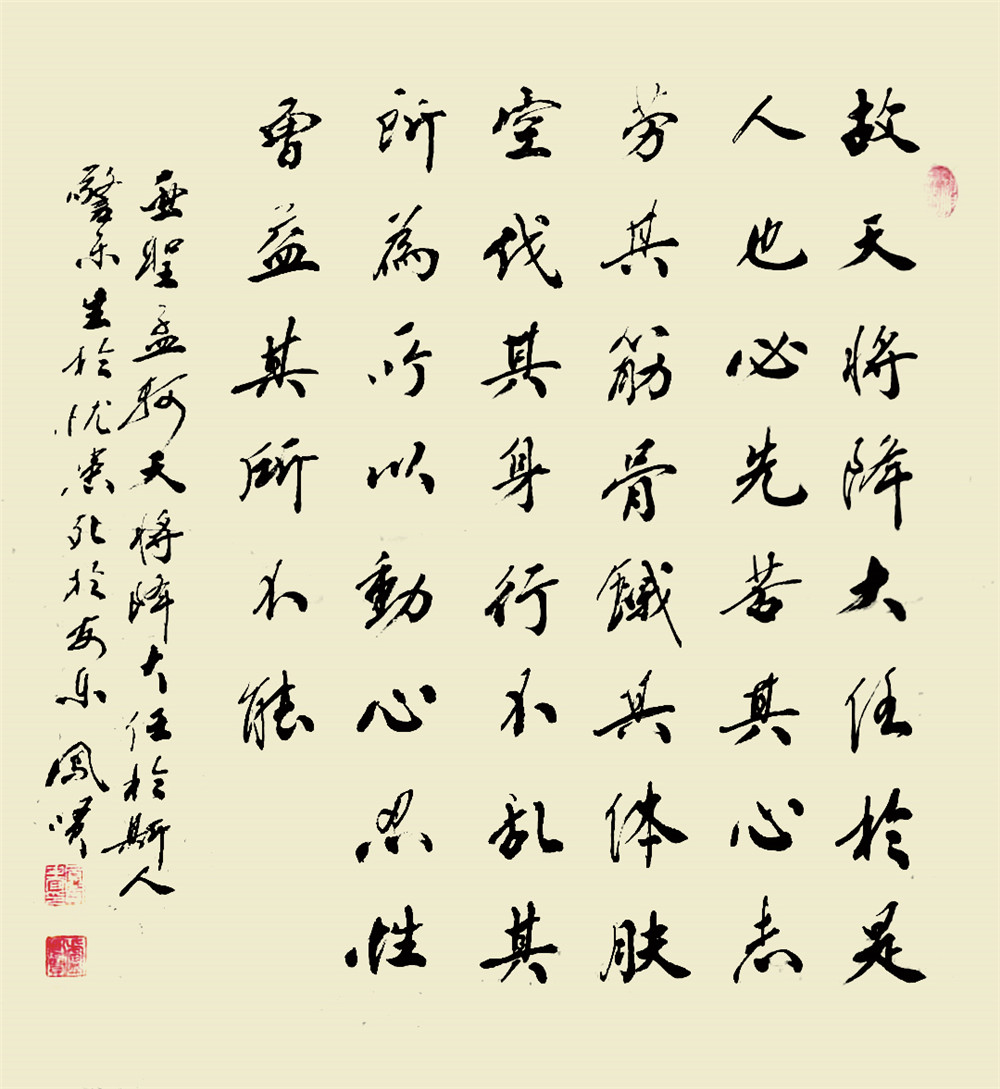 故天将降大任於是
人也必先苦其心志
劳其筋骨餓其体肤
空伐其身行不乱其
所為所以動心忍性
曾益其所不能
亜聖孟軻天将降大任於斯人
警示生於忧患死於安乐 鳳